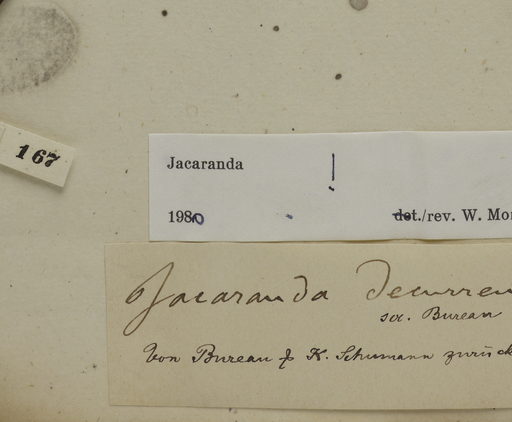 167
Jacaranda !
1980 det./rev. W. Mor
Jacaranda decurren
sec. Bureau
Von Bureau & K. Schumann zurück